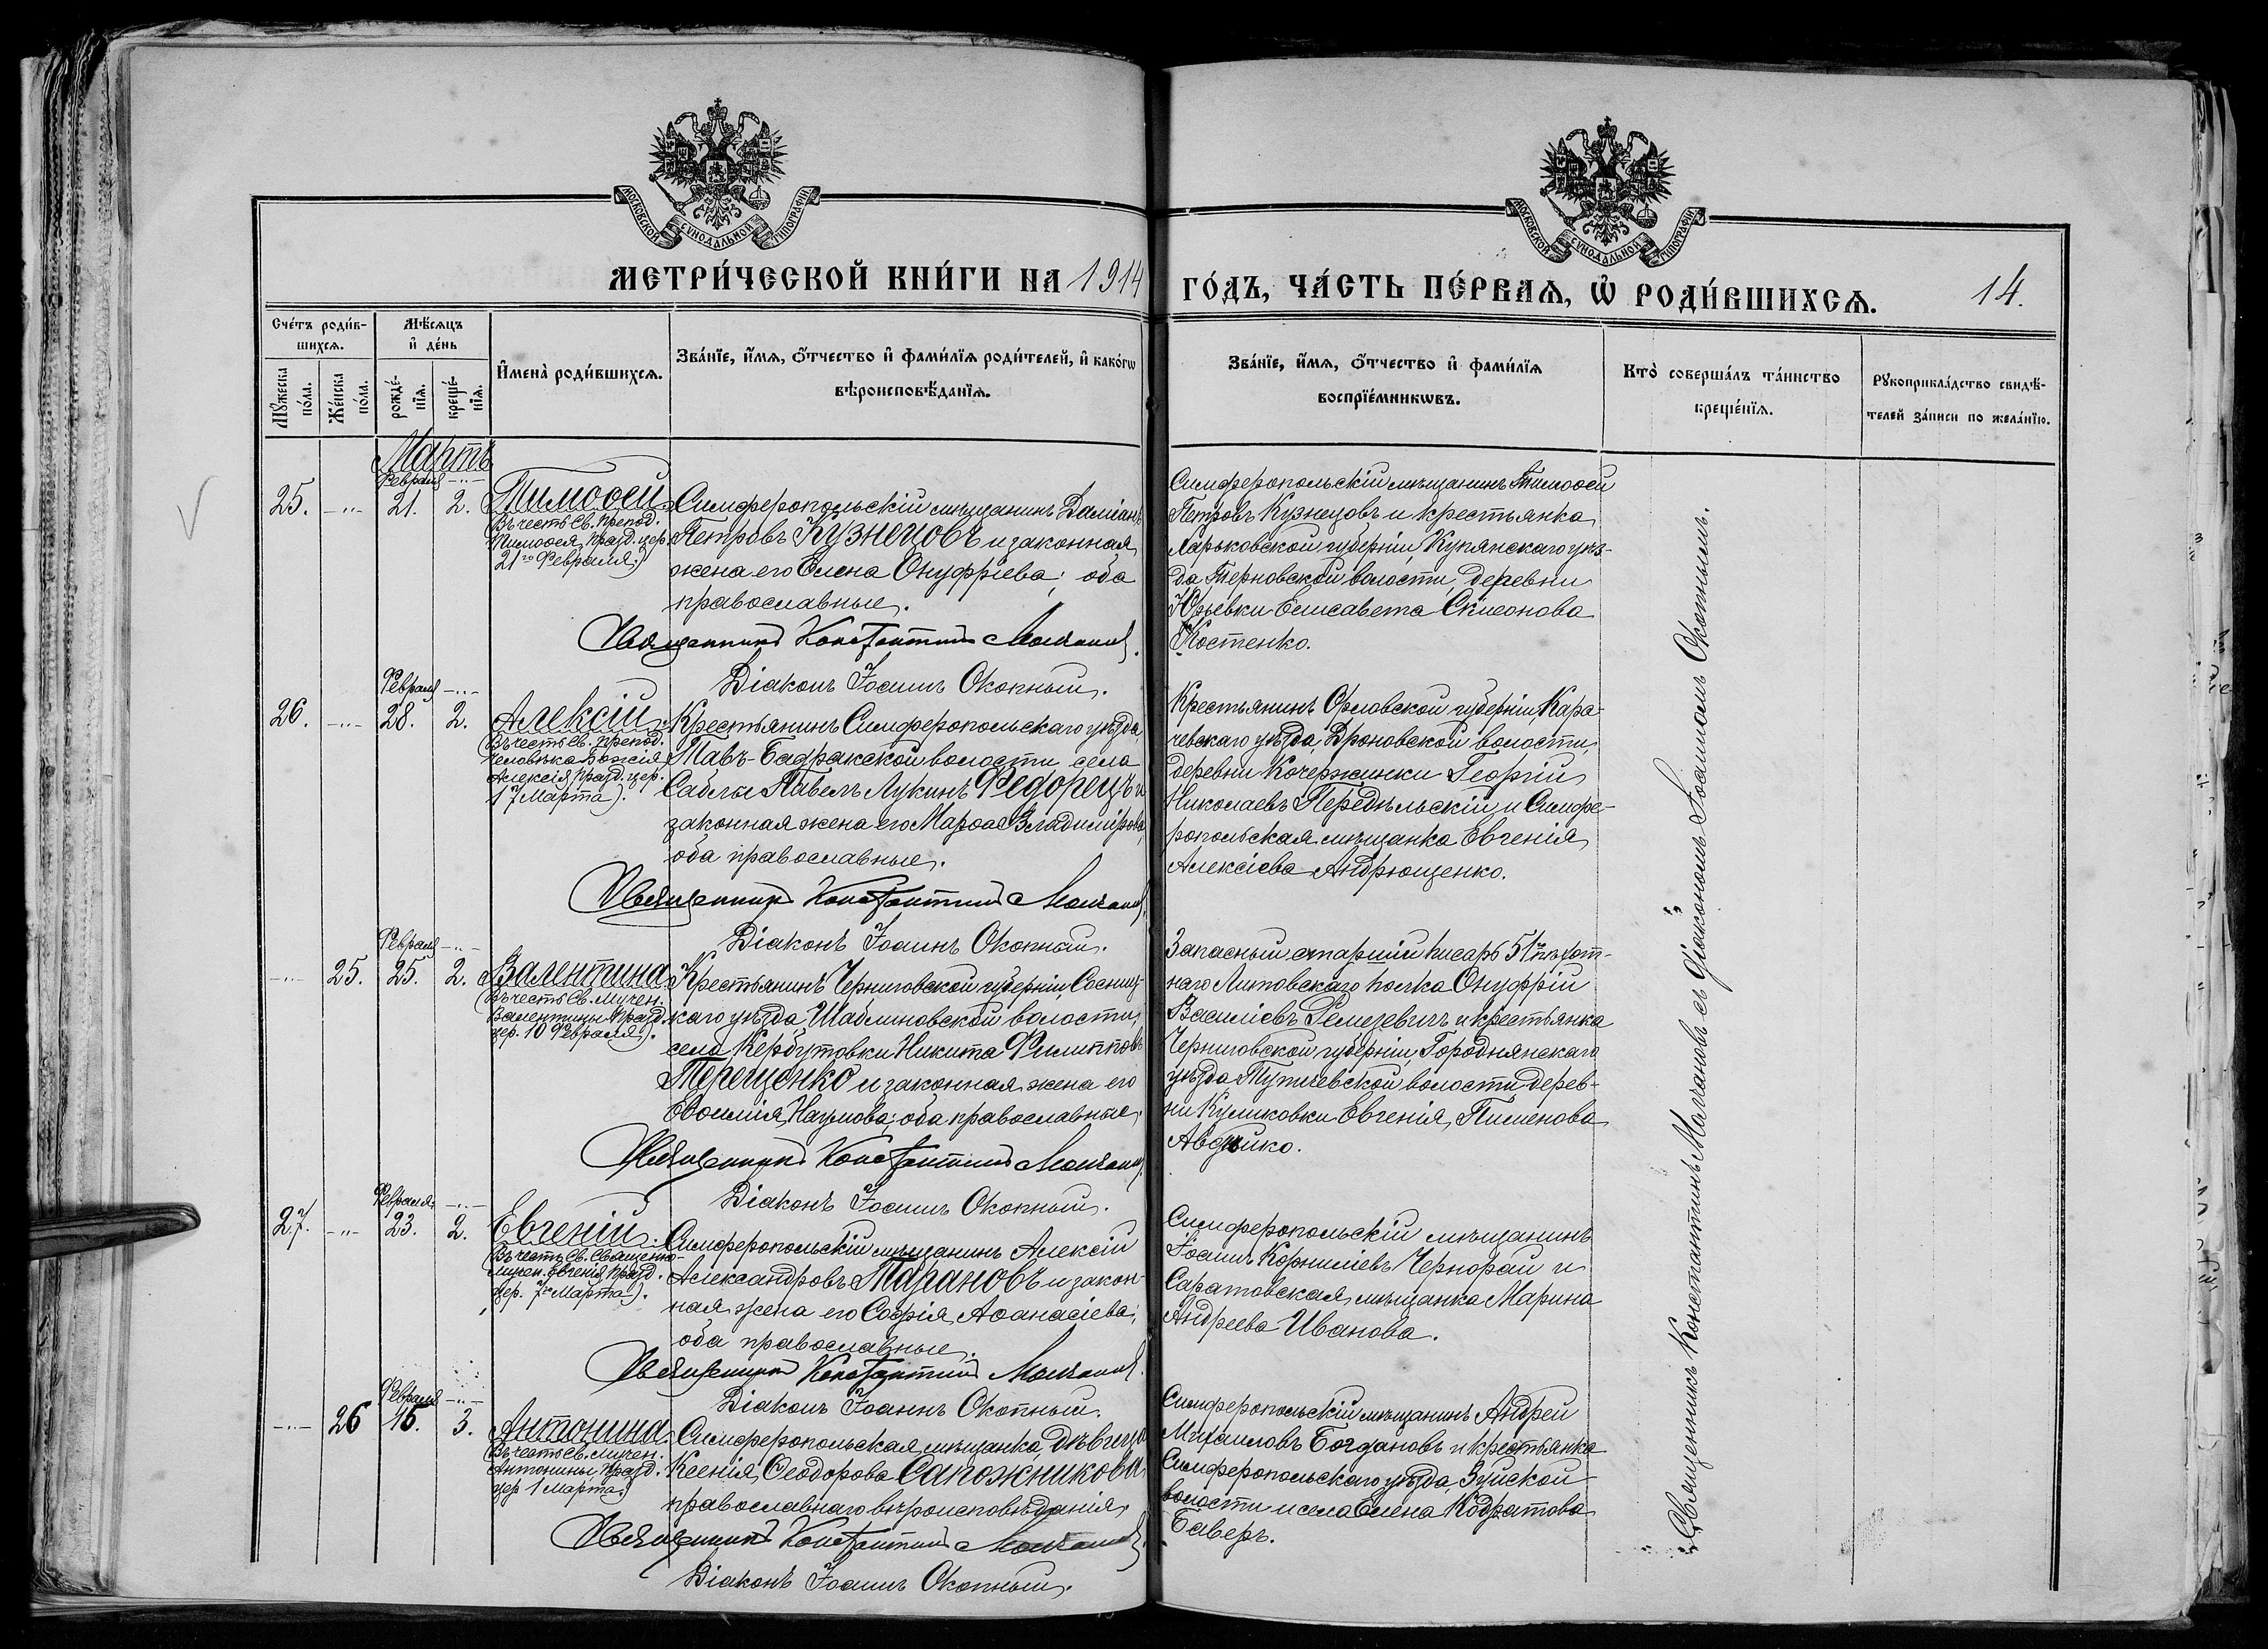 МОСКОВСКОЙ СѴНОДАЛЬНОЙ ТИПОГРАФІИ
МОСКОВСКОЙ СѴНОДАЛЬНОЙ ТИПОГРАФІИ
МЕТРИ́ЧЕСКОЙ КНИ́ГИ НА 1914 ГО́ДЪ, ЧА́СТЬ ПЕ́РВАѦ, Ѡ҆ РОДИ́ВШИХСѦ. 14.
Сче́тъ роди́в-
шихсѧ.
Мѣ́сѧцъ
и҆ де́нь
Мꙋ́жеска по́ла.
Же́нска по́ла.
рожде́-
нїѧ.
креще́-
нїѧ.
И҆мена̀ роди́вшихсѧ.
Зва́нїе, и҆́мѧ, ѻ҆́тчество и҆ фами́лїѧ роди́телей, и҆ како́гѡ
вѣроисповѣ́данїѧ.
Зва́нїе, и҆́мѧ, ѻ҆́тчество и҆ фами́лїѧ
воспрїе́мникѡвъ.
Кто̀ соверша́лъ та́инство
креще́нїѧ.
Рꙋкоприкла́дство свидѣ́-
телей за́писи по жела́нїю.
Мартъ
Февраля -..-
25. -..- 21. 2.
Тимоѳей
(Въ честь Св. препод.
Тимоѳея, празд. цер.
21го Февраля.)
Симферопольскій мѣщанинъ Даміанъ
Петровъ Кузнецовъ и законная
жена его Елена Онуфріева; оба
православные.
Священникъ Константинъ Молчановъ.
Діаконъ Іоаннъ Окопный.
Симферопольскій мѣщанинъ Тимоѳей
Петровъ Кузнецовъ и крестьянка
Харьковской губерніи, Купянскаго уѣз-
да Терновской волости, деревни
Юрьевки Елисавета Симеонова
Костенко.
Февраля -..-
26. -..- 28. 2.
Алексій.
(Въ честь Св. препод.
Человѣка Божія
Алексія, празд. цер.
17 Марта).
Крестьянинъ Симферопольскаго уѣзда,
Тавъ-Бадракской волости села
Саблы Павелъ Лукинъ Федорецъ и
законная жена его Марѳа Владимірова,
оба православные.
Священникъ Константинъ Молчановъ.
Діаконъ Іоаннъ Окопный.
Крестьянинъ Орловской губерніи, Кара-
чевскаго уѣзда, Дроновской волости,
деревни Кочержинки Георгій
Николаевъ Передѣльскій и Симфе-
ропольская мѣщанка Евгенія
Алексіева Андрющенко.
Февраля -..-
-..- 25. 25. 2.
Валентина
(Въ честь Св. Мучен.
Валентины празд.
цер. 10 Февраля).
Крестьянинъ Черниговской губерніи, Сосниц-
каго уѣзда, Шаблиновской волости,
села Кербутовки Никита Филипповъ
Терещенко и законная жена его
Евѳимія Наумова; оба православные.
Священникъ Константинъ Молчановъ.
Діаконъ Іоаннъ Окопный.
Запасный старшій писарь 51го пѣхот-
наго Литовскаго полка Онуфрій
Василіевъ Ремезевичъ и крестьянка
Черниговской губерніи, Городнянскаго
уѣзда, Тупичевской волости, дерев-
ни Куликовки Евгенія Пименова
Авдѣйко.
Февраля -..-
27. -..- 23. 2.
Евгеній.
(Въ честь Св. Священно-
мучен. Евгенія, празд.
цер. 7го Марта).
Симферопольскій мѣщанинъ Алексій
Александровъ Тарановъ и закон-
ная жена его Софія Аѳанасіева;
оба православные.
Священникъ Константинъ Молчановъ.
Діаконъ Іоаннъ Окопный.
Симферопольскій мѣщанинъ
Іоаннъ Корниліевъ Чернорай и
Саратовская мѣщанка Марина
Андреева Иванова.
Февраля -..-
-..- 26 16. 3.
Антонина.
(Въ честь Св. Мучен.
Антонины празд.
цер. 1 Марта.)
Симферопольская мѣщанка, дѣвица
Ксенія Ѳеодорова Сапожникова
православнаго вѣроисповѣданія
Священникъ Константинъ Молчановъ.
Діаконъ Іоаннъ Окопный.
Симферопольскій мѣщанинъ Андрей
Михаиловъ Богдановъ и крестьянка
Симферопольскаго уѣзда, Зуйской
волости и села Елена Кодратова
Баверъ.
„Священникъ Константинъ Молчановъ съ діакономъ Іоанномъ Окопнымъ.